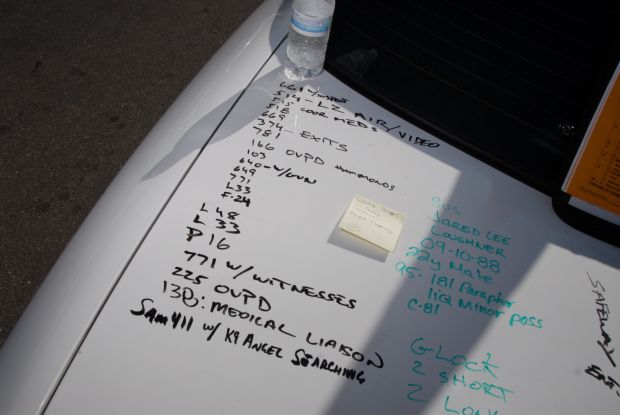 514 - LZ AIR/VIDEO
515 COOR MEDS
518
669
374
781 - EXITS
166 OVPD HAMMONDS
103
640 - W/GUN
649
771
L33
F-24
L48
L33
P16
771 W/WITNESSES
225 OVPD
138: MEDICAL LIASON
SAM411 W/ K9 ANGEL SEARCHING
SUS
JARED LEE
LOUGHNER
09-10-88
22y Male
95-181 Paraphr
liq Minor poss
C-81
G-LOCK
2 SHORT
2 LONG
SAFEWAY